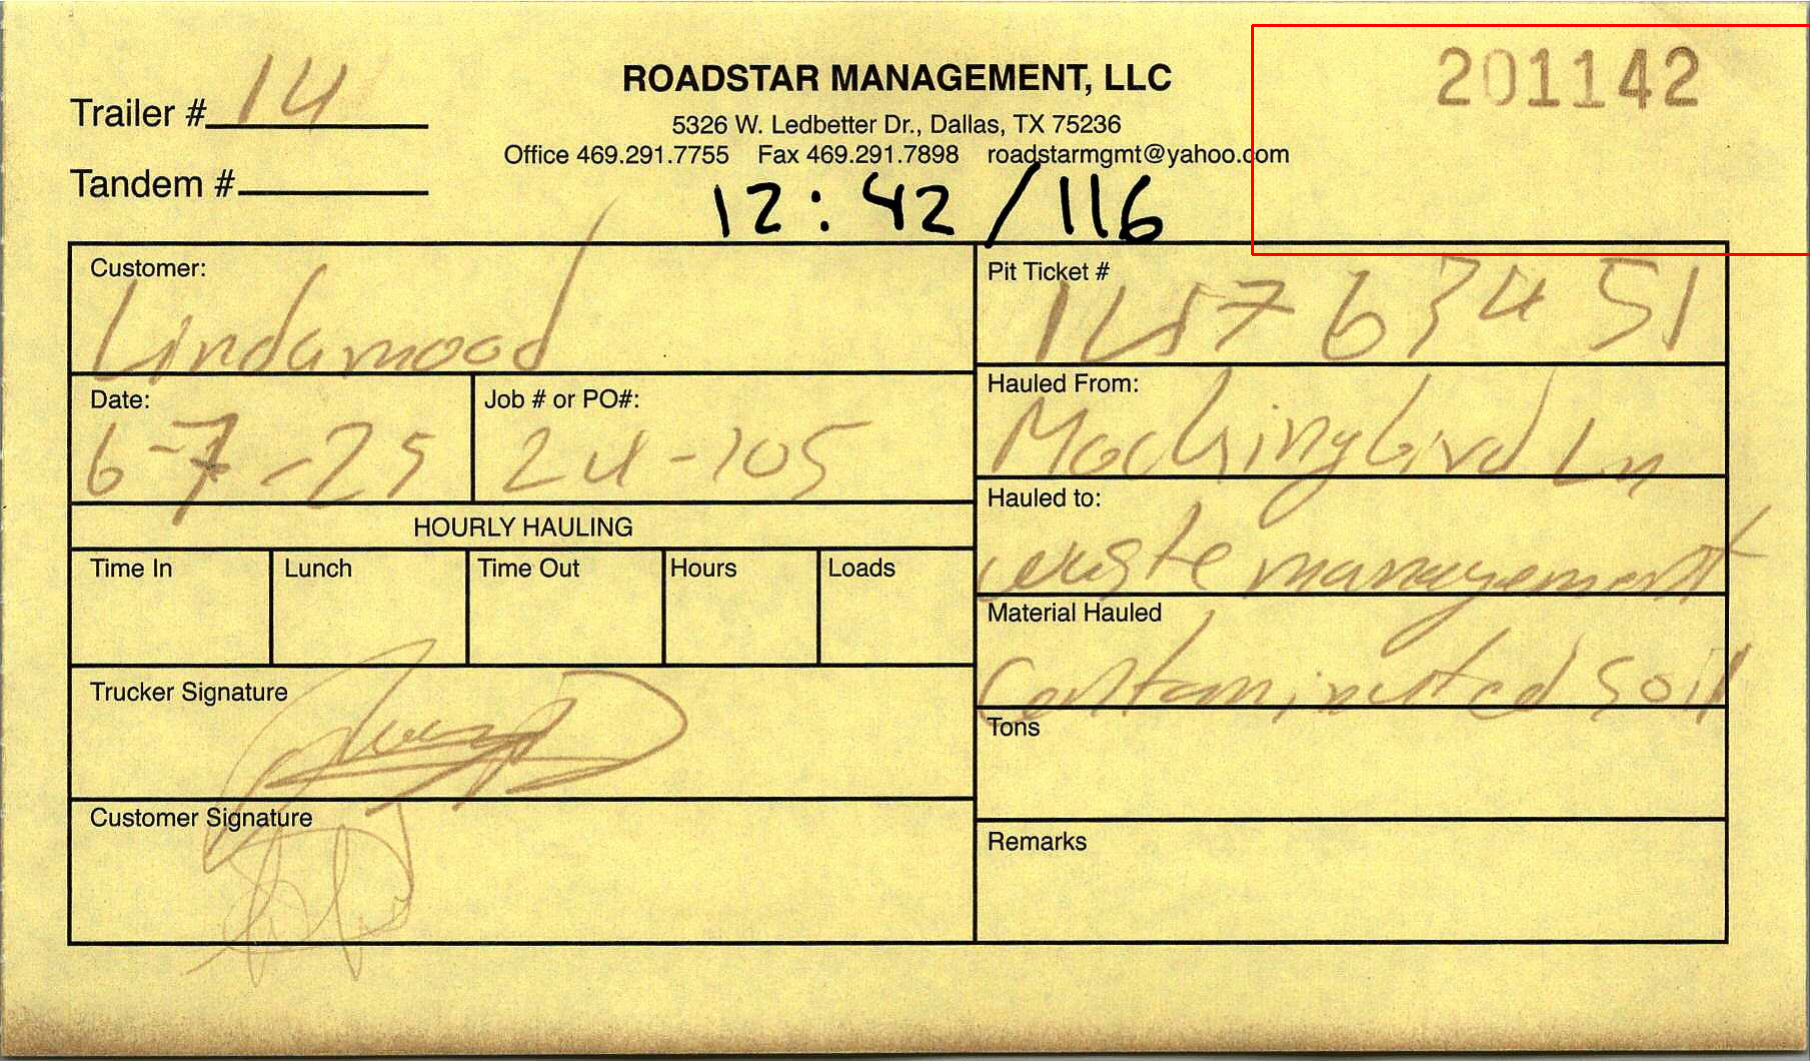 201142
Trailer # 14
ROADSTAR MANAGEMENT, LLC
5326 W. Ledbetter Dr., Dallas, TX 75236
Office 469.291.7755 Fax 469.291.7898 roadstarmgmt@yahoo.com
Tandem #
12:42/116
Customer:
Lindamood
Pit Ticket #
Date:
6-7-25
Job # or PO#:
24-105
Hauled From:
Mockingbird Ln
HOURLY HAULING
Hauled to:
waste management
Time In
Lunch
Time Out
Hours
Loads
Material Hauled
Contaminated Soil
Trucker Signature
Tons
Customer Signature
Remarks